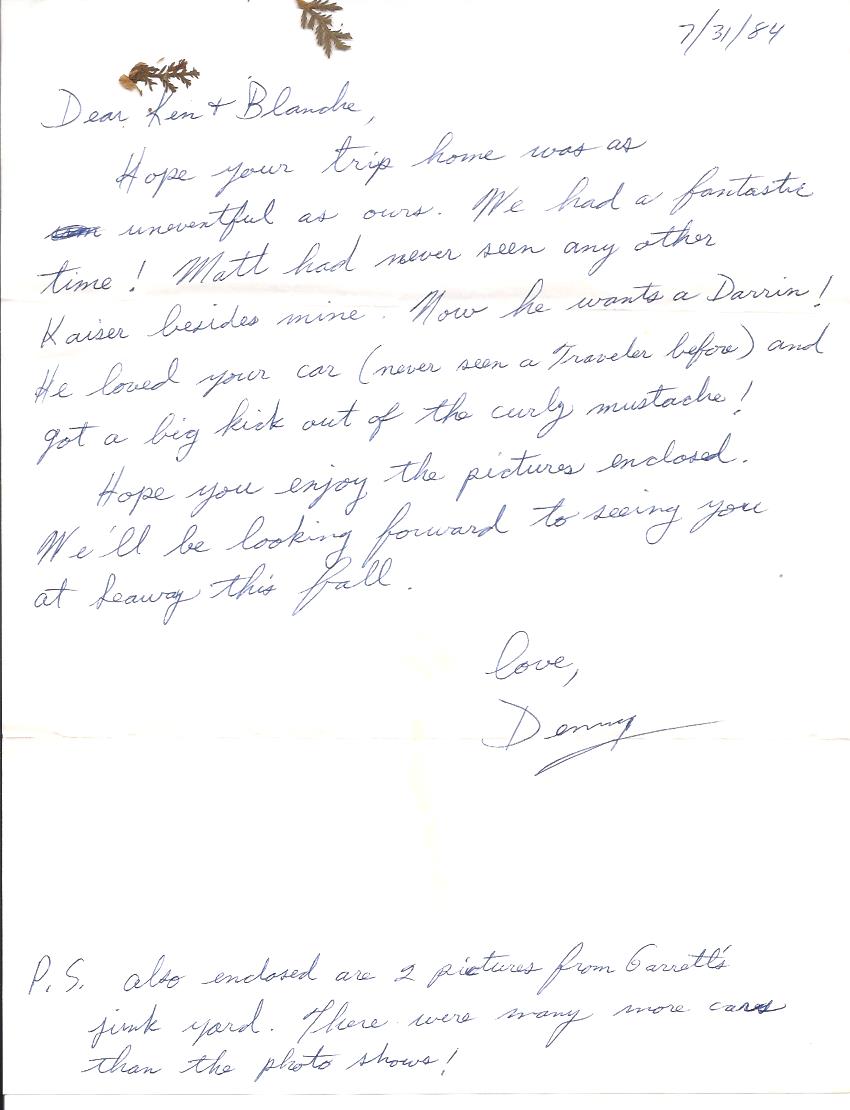 7/31/84
Dear Ken + Blanche,
Hope your trip home was as
uneventful as ours. We had a fantastic
time! Matt had never seen any other
Kaiser besides mine. Now he wants a Darrin!
He loved your car (never seen a Traveler before) and
got a big kick out of the curly mustache!
Hope you enjoy the pictures enclosed.
We'll be looking forward to seeing you
at Seaway this fall.
Love,
Denny
P.S. also enclosed are 2 pictures from Garrett's
junk yard. There were many more cars
than the photo shows!